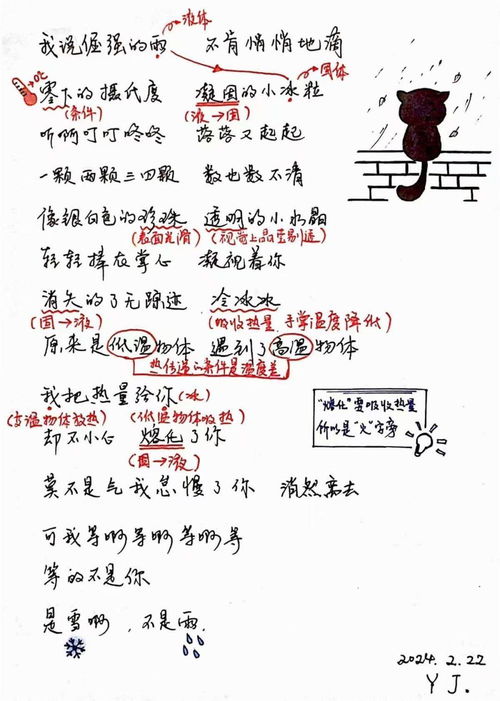 液体
我说倔强的雨 不肯悄悄地滴
固体
0℃
零下的摄氏度 凝固的小冰粒
(条件) (液→固)
听啊叮叮咚咚 落落又起起
一颗两颗三四颗 数也数不清
像银白色的珍珠 透明的小水晶
(表面光滑) (视觉上晶莹剔透)
轻轻捧在掌心 凝视着你
消失的了无踪迹 冷冰冰
(固→液) (吸收热量 手掌温度降低)
原来是低温物体 遇到了高温物体
热传递的条件是温度差
我把热量给你(冰)
(高温物体放热) (低温物体吸热)
却不小心 熔化了你
(固→液)
"熔化"要吸收热量
所以是"火"字旁
莫不是气我怠慢了你 消然离去
可我等啊等啊等啊等
等的不是你
是雪啊,不是雨.
2024.2.22
YJ.